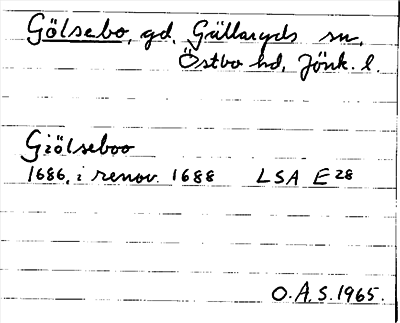 Gölsebo, gd, Gällaryds sn,
Östbo hd, Jönk. l.
Giölseboo
1686, i renov. 1688 LSA E 28
O.A.S. 1965.